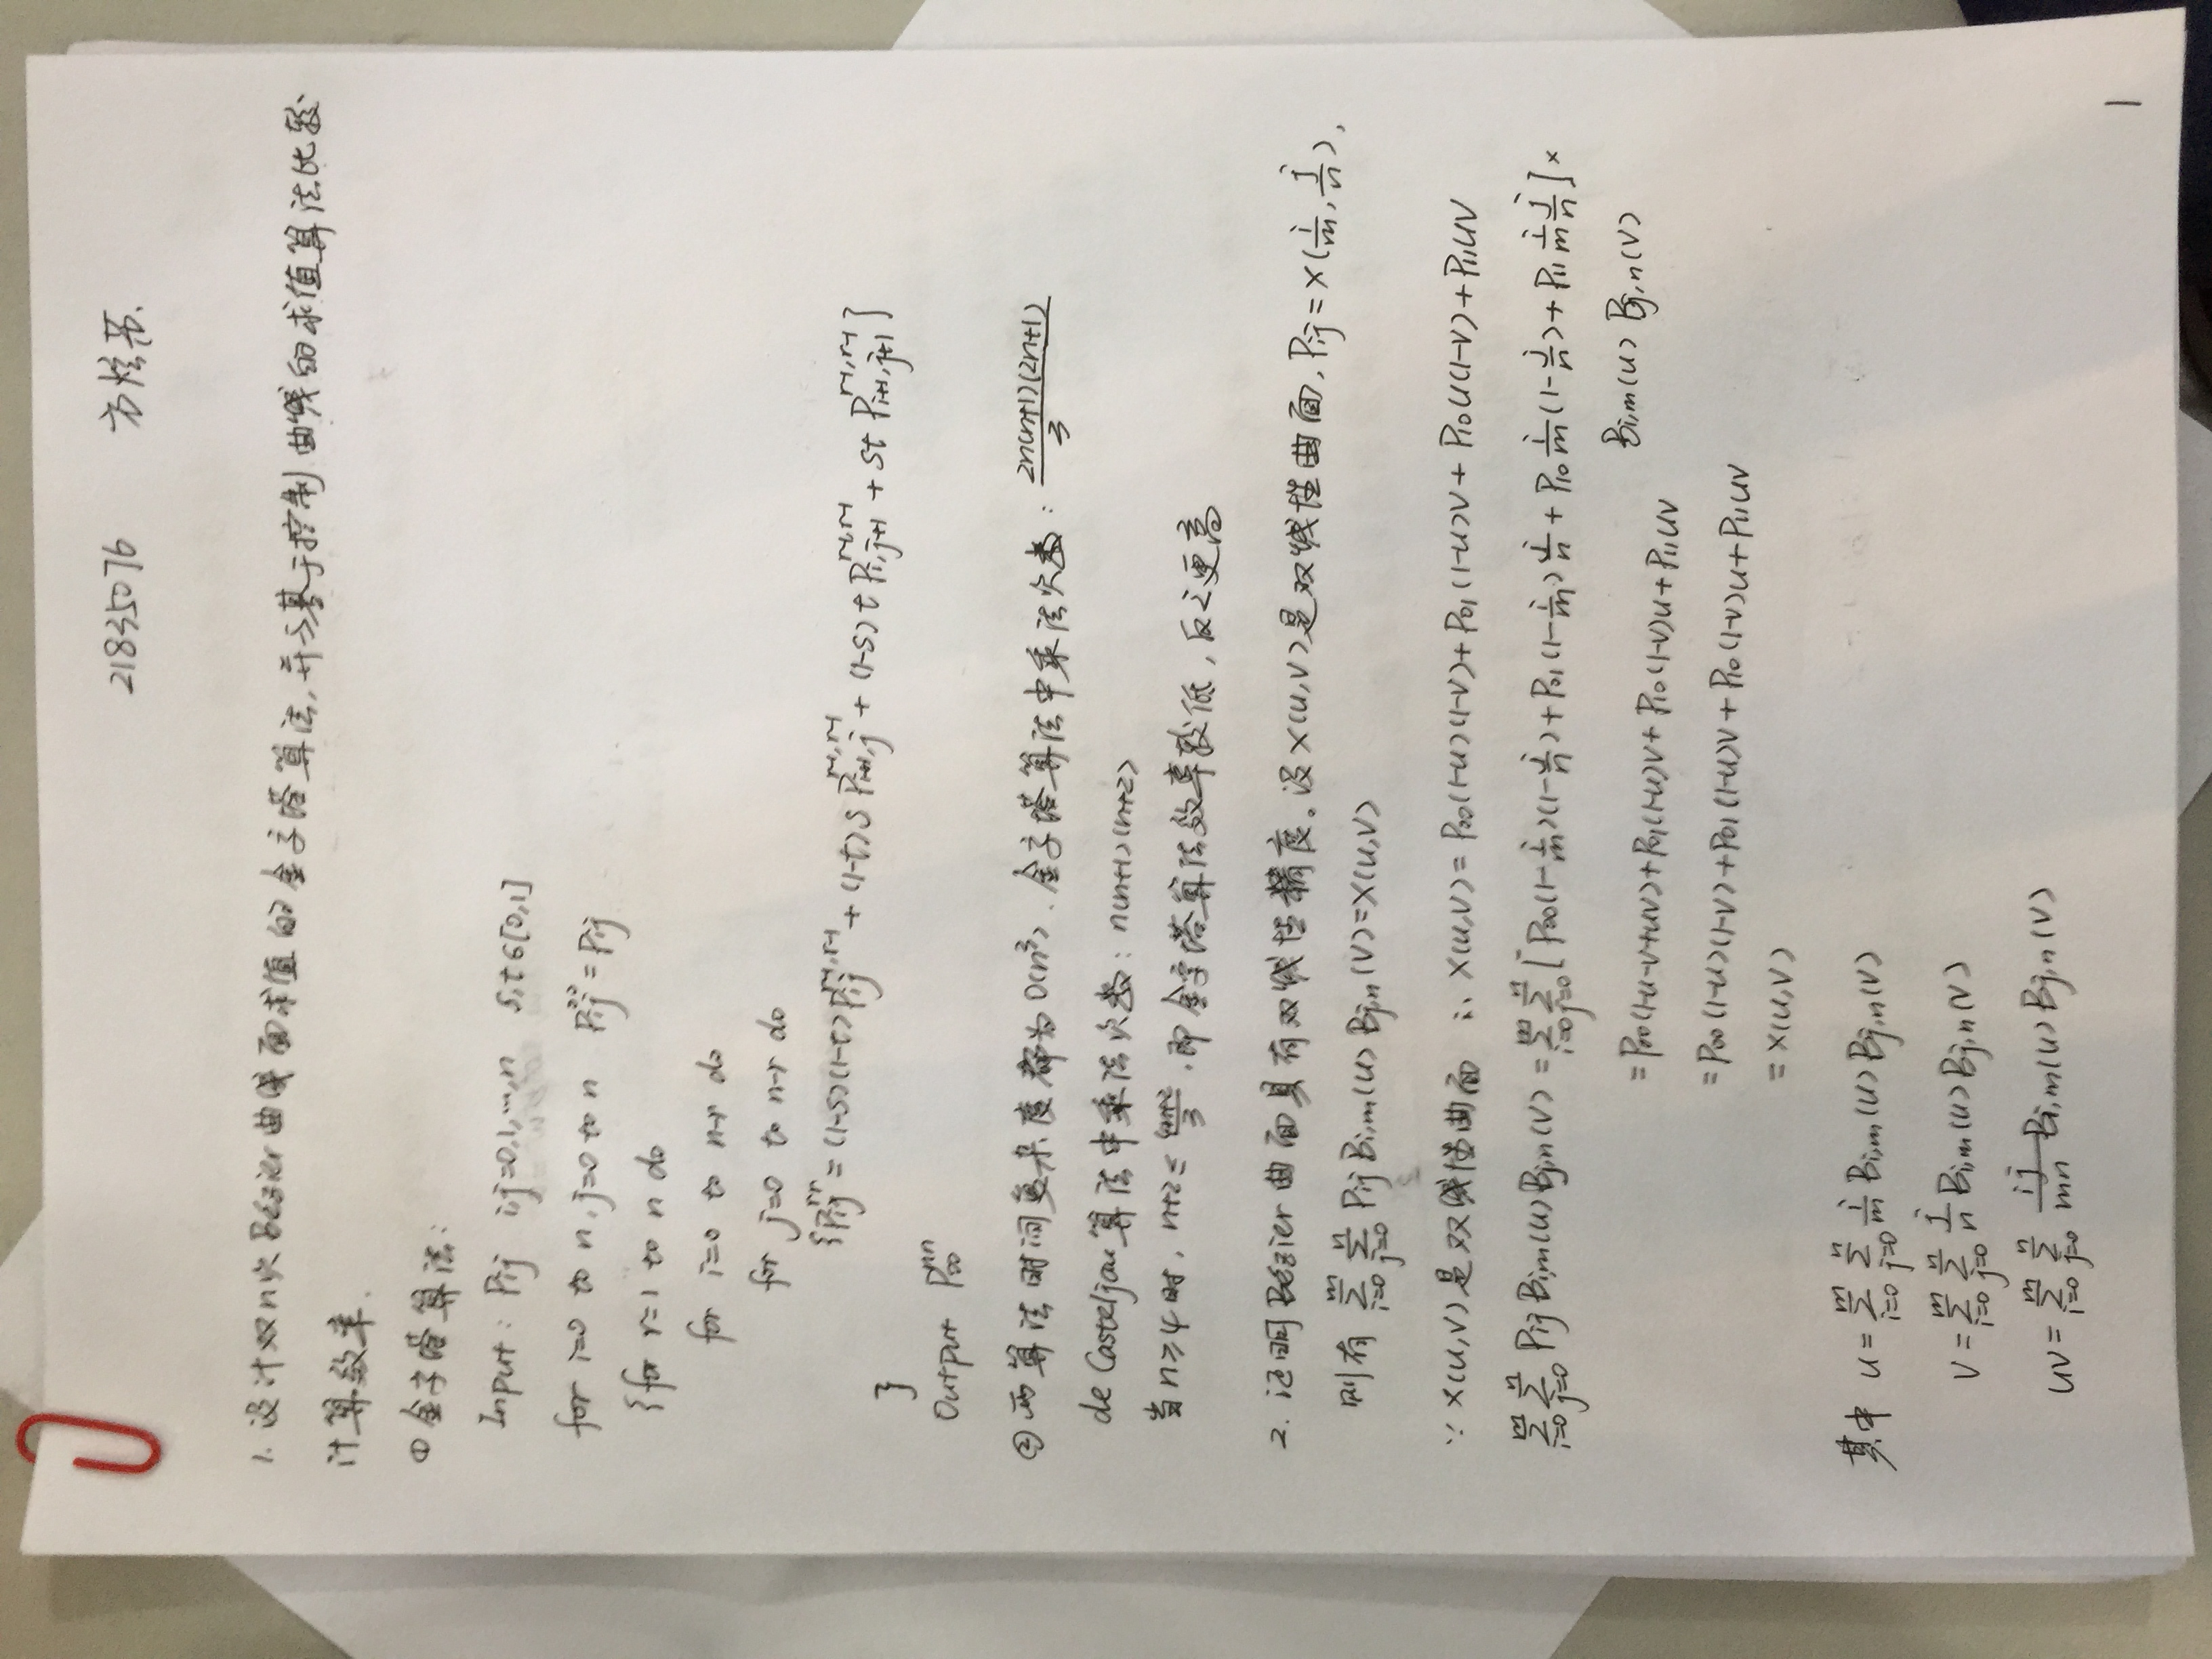 21835076 方炫苏.
1. 设计双n次Bézier曲线面求值的金字塔算法,并与基于控制曲线的求值算法比较
计算效率.
① 金字塔算法:
Input: Pij i,j=0,1,…,n s,t∈[0,1]
for i=0 to n, j=0 to n Pij^00 = Pij
{for r=1 to n do
for i=0 to n-r do
for j=0 to n-r do
{Pij^rr = (1-s)(1-t)Pij^r-1,r-1 + (1-t)s Pi+1,j^r-1,r-1 + (1-s)t Pi,j+1^r-1,r-1 + st Pi+1,j+1^r-1,r-1}
}
Output P00^nn
② 两算法时间复杂度都为O(n³). 金字塔算法中乘法次数: 2n(n+1)(2n+1)/3
de Casteljau算法中乘法次数: n(n+1)(n+2)
当n≥4时, n+2≤(4n+2)/3, 即金字塔算法效率较低, 反之更高
2. 证明Bézier曲面具有双线性精度。设X(u,v)是双线性曲面, Pij=X(i/m, j/n),
则有 Σ(i=0..m) Σ(j=0..n) Pij Bi,m(u) Bj,n(v)=X(u,v)
∵ X(u,v)是双线性曲面 ∴ X(u,v)= P00(1-u)(1-v)+P01(1-u)v+P10u(1-v)+P11uv
Σ(i=0..m) Σ(j=0..n) Pij Bi,m(u) Bj,n(v) = Σ(i=0..m) Σ(j=0..n) [P00(1-i/m)(1-j/n)+P01(1-i/m)j/n+P10 i/m(1-j/n)+P11 i/m j/n] ×
Bi,m(u) Bj,n(v)
=P00(1-u-v+uv)+P01(1-u)v+P10(1-v)u+P11uv
=P00(1-u)(1-v)+P01(1-u)v+P10(1-v)u+P11uv
=X(u,v)
其中 u=Σ(i=0..m) Σ(j=0..n) i/m Bi,m(u) Bj,n(v)
v=Σ(i=0..m) Σ(j=0..n) j/n Bi,m(u) Bj,n(v)
uv=Σ(i=0..m) Σ(j=0..n) ij/mn Bi,m(u) Bj,n(v)
1